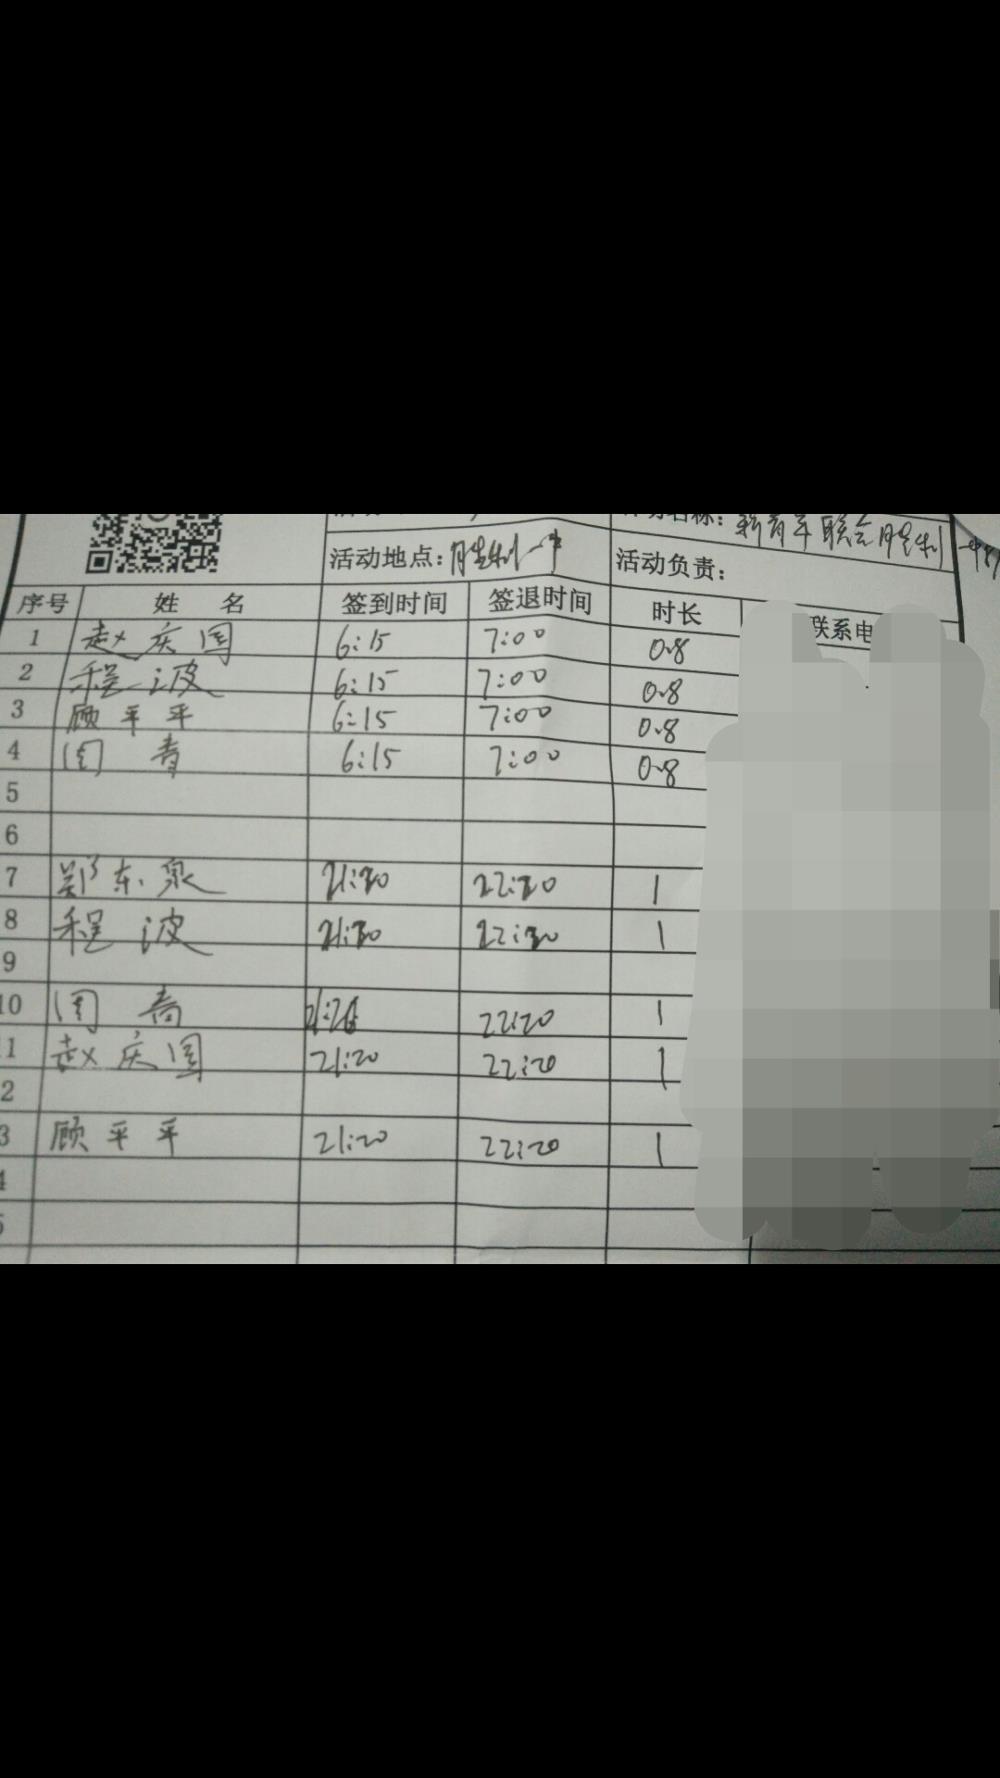 活动名称：新青年联合胜利一中
活动地点：胜利一中 活动负责：
序号 姓 名 签到时间 签退时间 时长 联系电
1 赵庆国 6:15 7:00 0.8
2 程波 6:15 7:00 0.8
3 顾平平 6:15 7:00 0.8
4 周青 6:15 7:00 0.8
5
6
7 郑东泉 21:20 22:20 1
8 程波 21:20 22:20 1
9
10 周青 21:20 22:20 1
1 赵庆国 21:20 22:20 1
2
3 顾平平 21:20 22:20 1
4
5